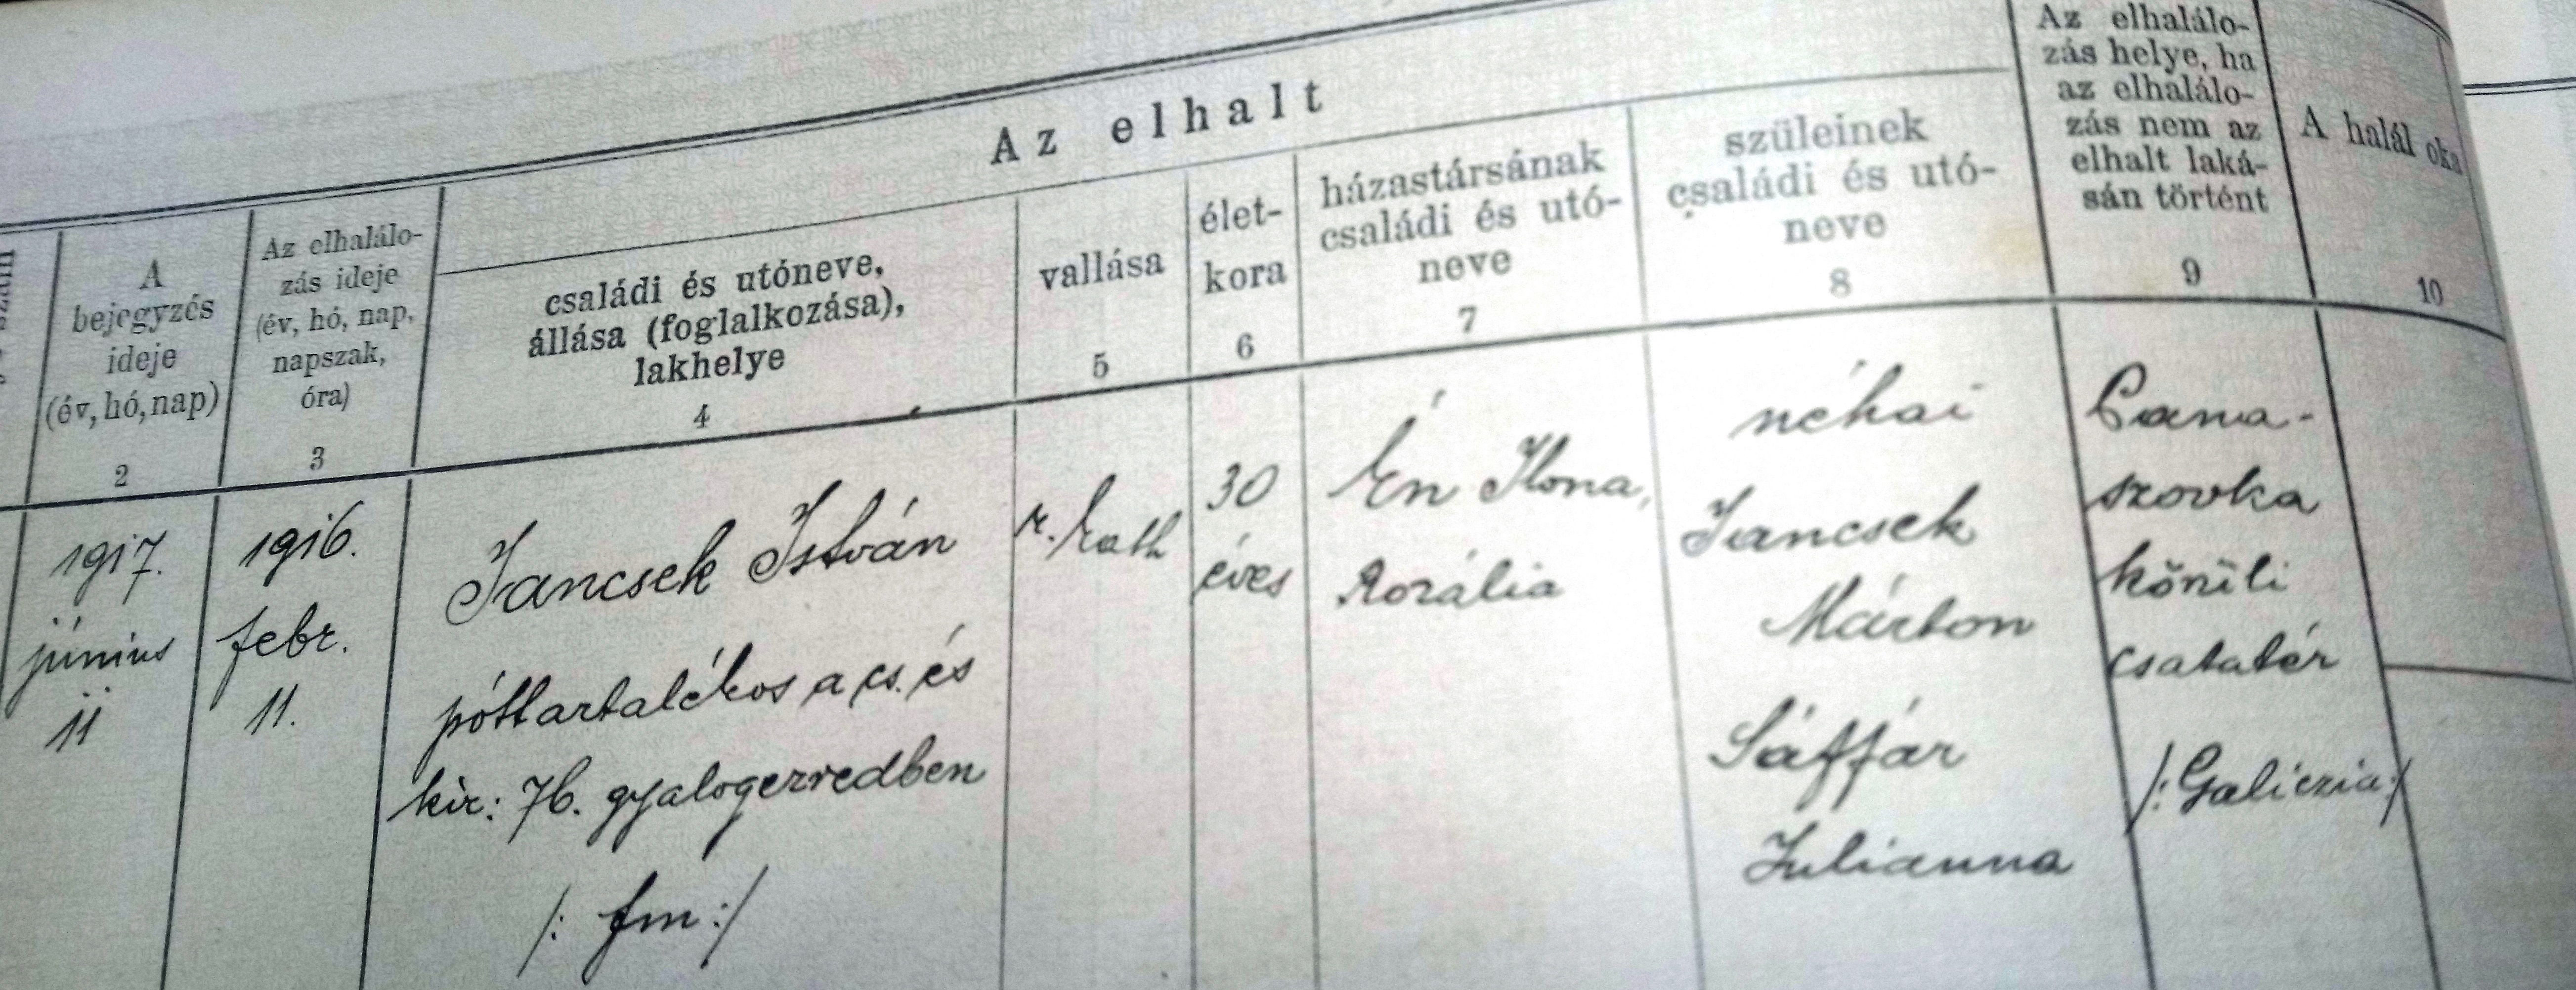 Az elhalt
A
bejegyzés
ideje
(év, hó, nap)
2
Az elhalálo-
zás ideje
(év, hó, nap,
napszak,
óra)
3
családi és utóneve,
állása (foglalkozása),
lakhelye
4
vallása
5
élet-
kora
6
házastársának
családi és utó-
neve
7
szüleinek
családi és utó-
neve
8
Az elhalálo-
zás helye, ha
az elhalálo-
zás nem az
elhalt laká-
sán történt
9
A halál oka
10
1917.
június
11
1916.
febr.
11.
Jancsek István
póttartalékos a cs. és
kir: 76. gyalogezredben
/: fm :/
r. kath
30
éves
Én Ilona,
Rozália
néhai
Jancsek
Márton
Sáffár
Julianna
szovka
körüli
csatatér
/: Galiczia :/